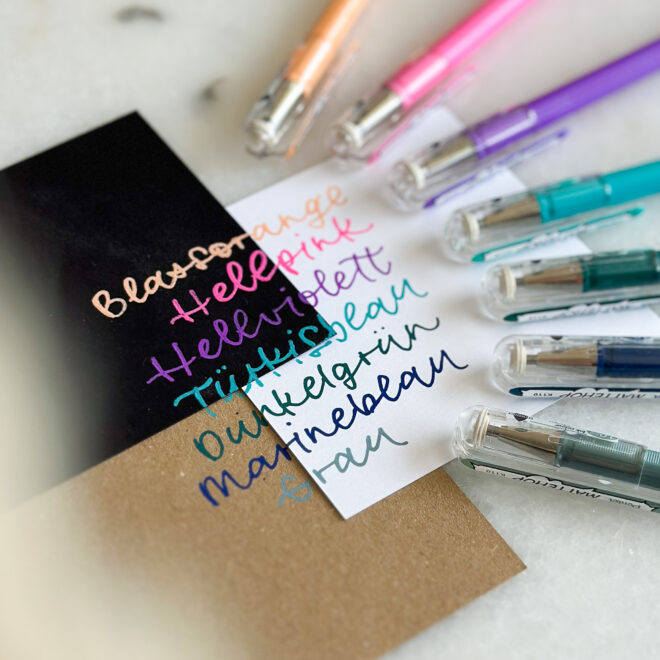 Blassorange
Hellpink
Hellviolett
Türkisblau
Dunkelgrün
Marineblau
Grau
MATTEHOP
Pentel MATTEHOP K110